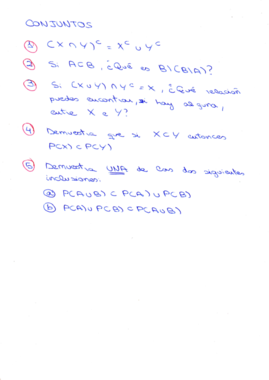 CONJUNTOS
① (X ∩ Y)ᶜ = Xᶜ ∪ Yᶜ
② Si A⊂B, ¿Qué es B\(B\A)?
③ Si (X∪Y) ∩ Yᶜ = X, ¿Qué relación
puedes encontrar, si hay alguna,
entre X e Y?
④ Demuestra que si X⊂Y entonces
P(X) ⊂ P(Y)
⑤ Demuestra UNA de las dos siguientes
inclusiones:
ⓐ P(A∪B) ⊂ P(A) ∪ P(B)
ⓑ P(A) ∪ P(B) ⊂ P(A∪B)